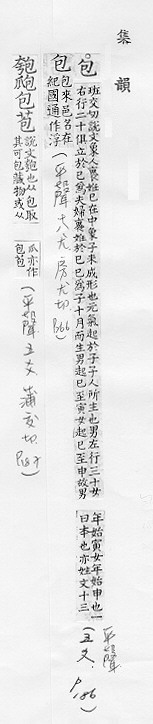 集韻
包 班交切說文象人裹妊巳在中象子未成形也元氣起於子子人所生也男左行三十女
右行二十俱立於巳爲夫婦裹妊於巳巳爲子十月而生男起巳至寅女起巳至申故男
年始寅女年始申也一
曰本也亦姓文十三
(平聲 五爻 P.186)
包 包來邑名在
紀國通作浮
(平聲 十八尤 房尤切 P266)
匏瓟包苞 說文瓠也从包取
其可包藏物或从
瓜亦作
包苞
(平聲 五爻 蒲交切 P187)